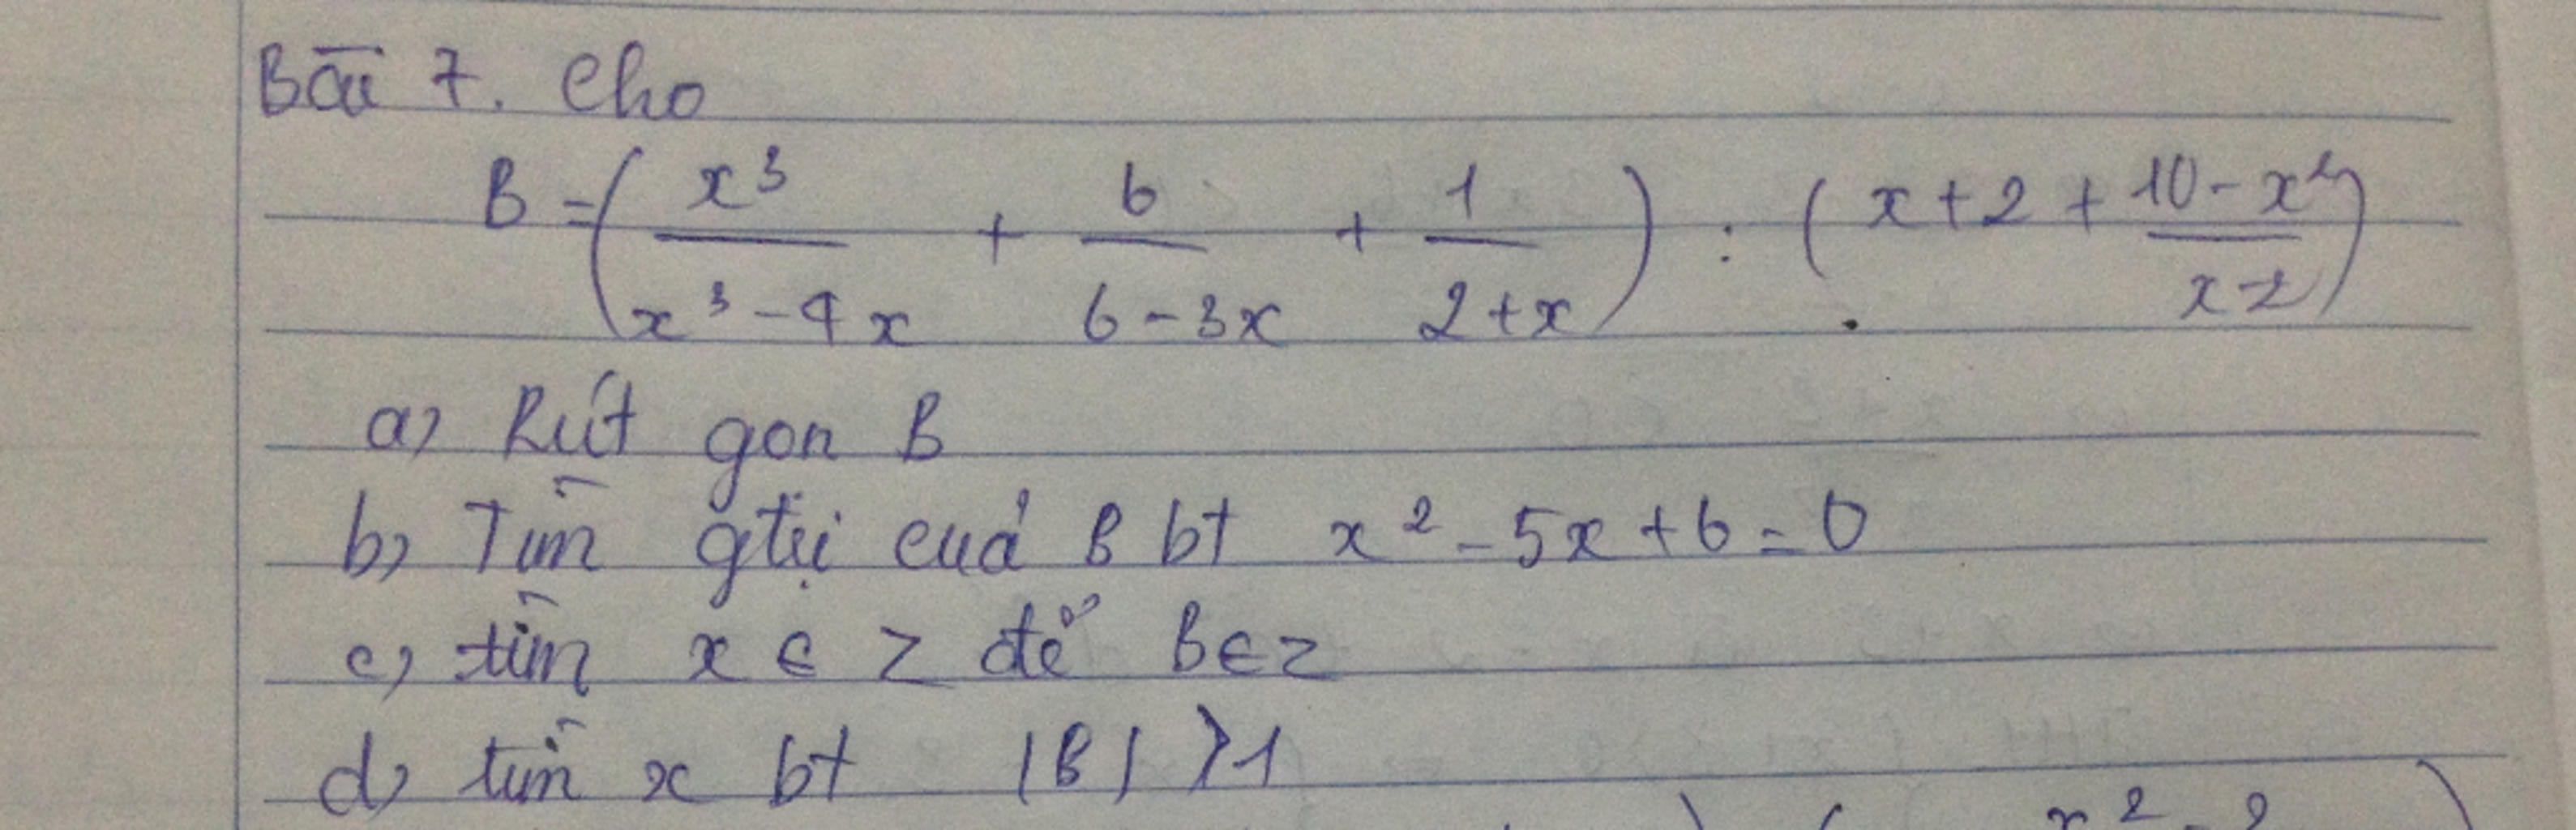 Bài 7. Cho
B = ( x³/(x³-4x) + 6/(6-3x) + 1/(2+x) ) : ( x+2 + (10-x²)/(x-2) )
a) Rút gọn B
b) Tìm gtrị của B bt x² - 5x + 6 = 0
c) tìm x ∈ Z để B ∈ Z
d) tìm x bt |B| > 1